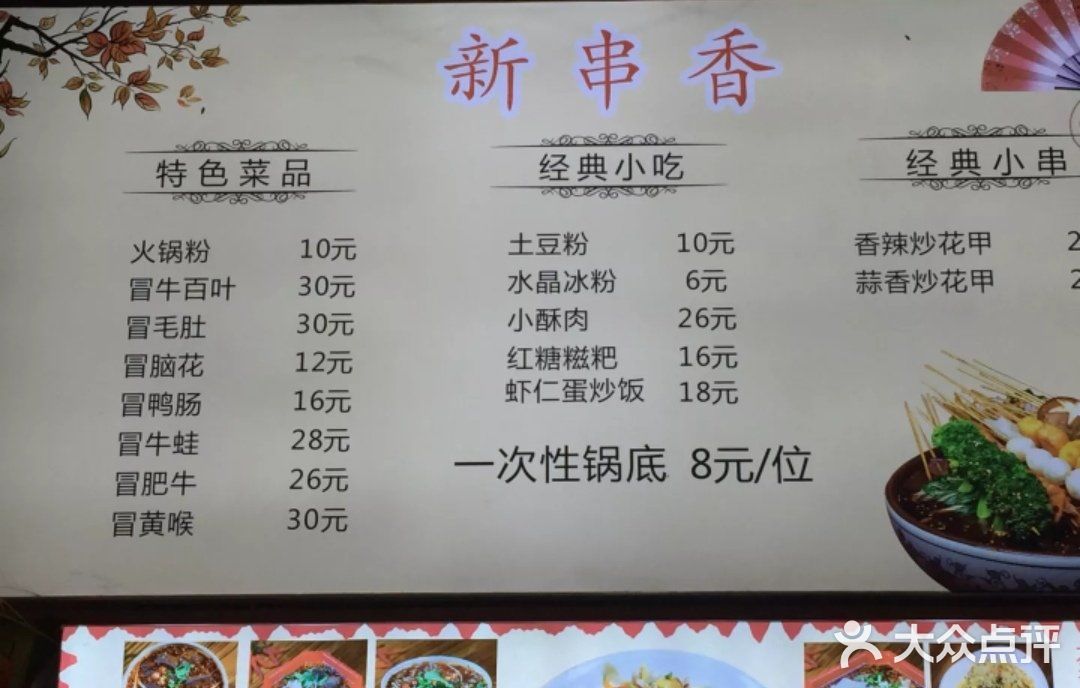 新串香
特色菜品
火锅粉 10元
冒牛百叶 30元
冒毛肚 30元
冒脑花 12元
冒鸭肠 16元
冒牛蛙 28元
冒肥牛 26元
冒黄喉 30元
经典小吃
土豆粉 10元
水晶冰粉 6元
小酥肉 26元
红糖糍粑 16元
虾仁蛋炒饭 18元
一次性锅底 8元/位
经典小串
香辣炒花甲 2
蒜香炒花甲 2
大众点评